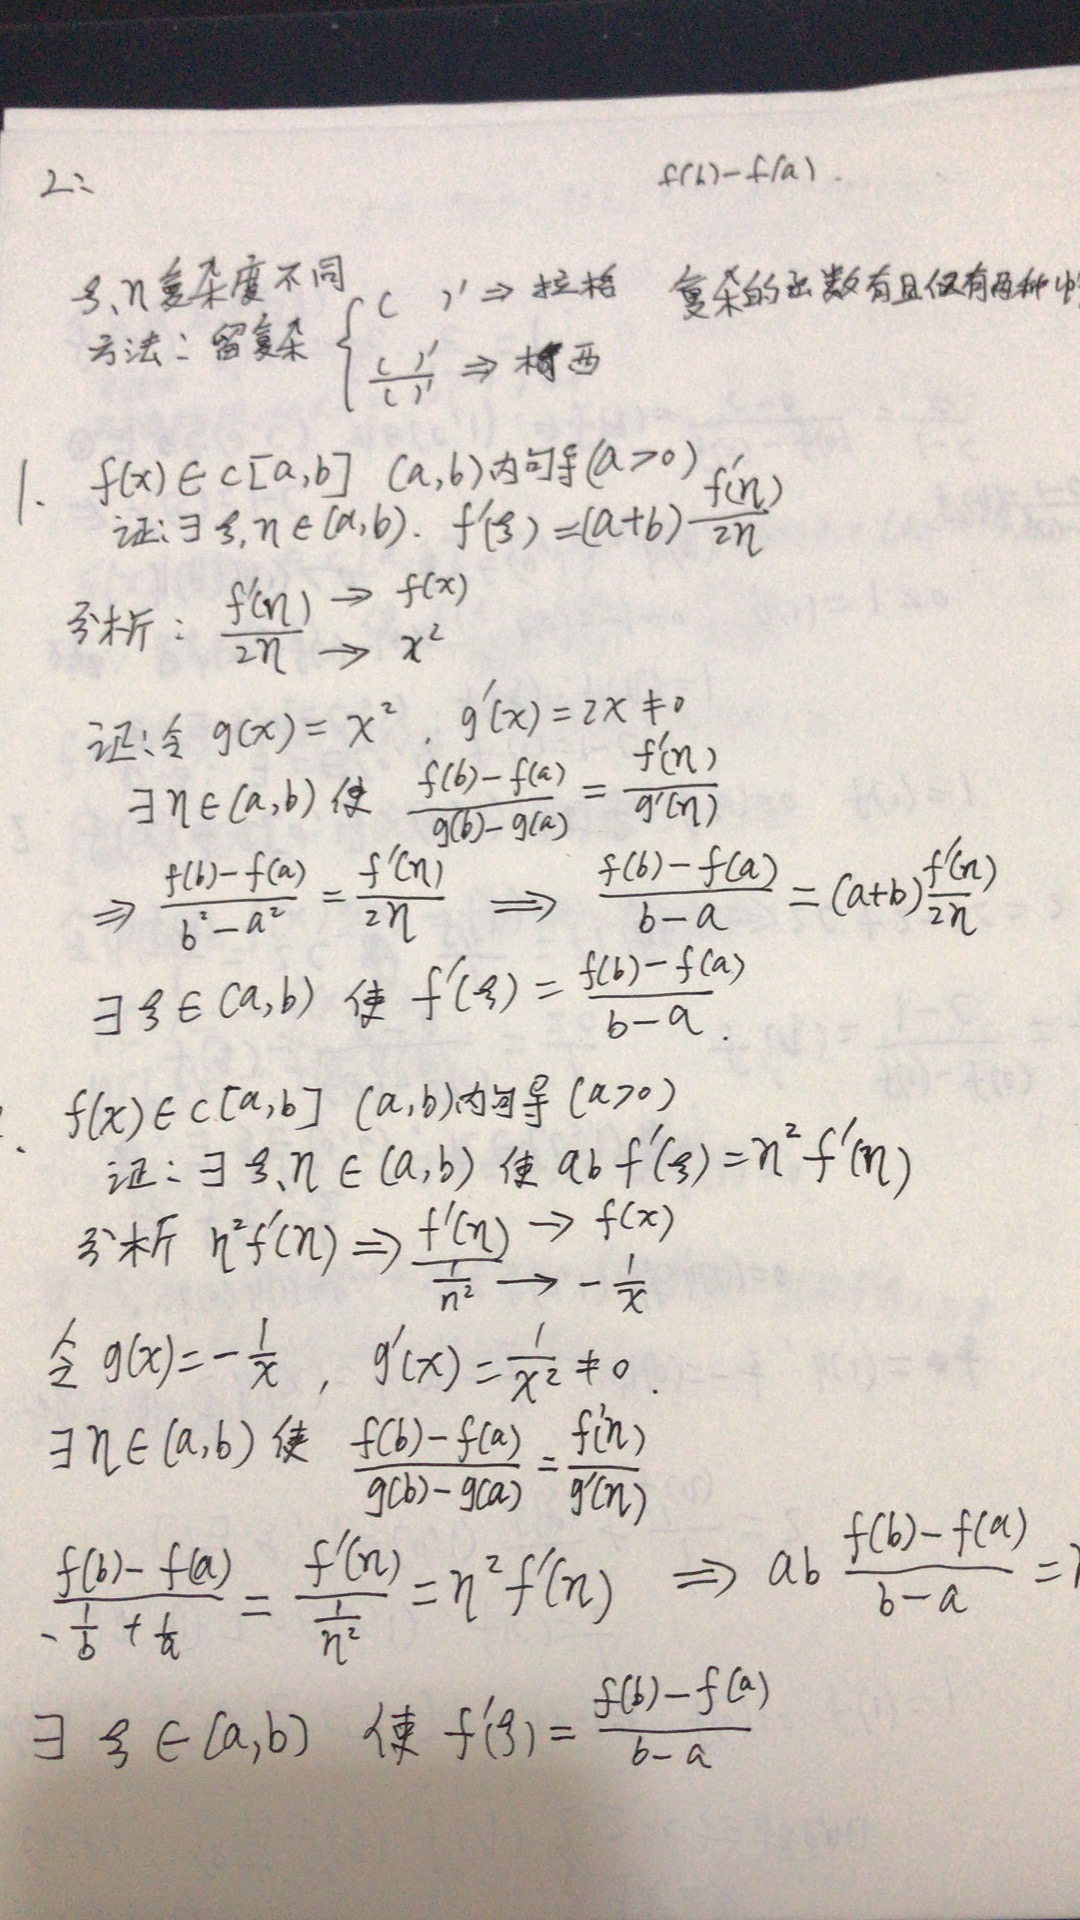 2:
f(b)-f(a).
ξ、η复杂度不同
方法：留复杂 { ( )' ⇒ 拉格 复杂的函数有且仅有两种
( )'/( )' ⇒ 柯西
1. f(x)∈C[a,b] (a,b)内可导(a>0)
证:∃ξ,η∈(a,b). f'(ξ)=(a+b) f'(η)/2η
分析: f'(η)/2η → f(x)
→ x²
证:令 g(x)=x², g'(x)=2x≠0
∃η∈(a,b) 使 (f(b)-f(a))/(g(b)-g(a)) = f'(η)/g'(η)
⇒ (f(b)-f(a))/(b²-a²) = f'(η)/2η ⇒ (f(b)-f(a))/(b-a) = (a+b) f'(η)/2η
∃ξ∈(a,b) 使 f'(ξ) = (f(b)-f(a))/(b-a).
f(x)∈C[a,b] (a,b)内可导 (a>0)
证:∃ξ、η∈(a,b) 使 ab f'(ξ)=η² f'(η)
分析 η²f'(η) ⇒ f'(η)/(1/η²) → f(x)
→ -1/x
令 g(x)=-1/x, g'(x)=1/x²≠0.
∃η∈(a,b) 使 (f(b)-f(a))/(g(b)-g(a)) = f'(η)/g'(η)
(f(b)-f(a))/(-1/b+1/a) = f'(η)/(1/η²) = η²f'(η) ⇒ ab (f(b)-f(a))/(b-a) =
∃ξ∈(a,b) 使 f'(ξ) = (f(b)-f(a))/(b-a)